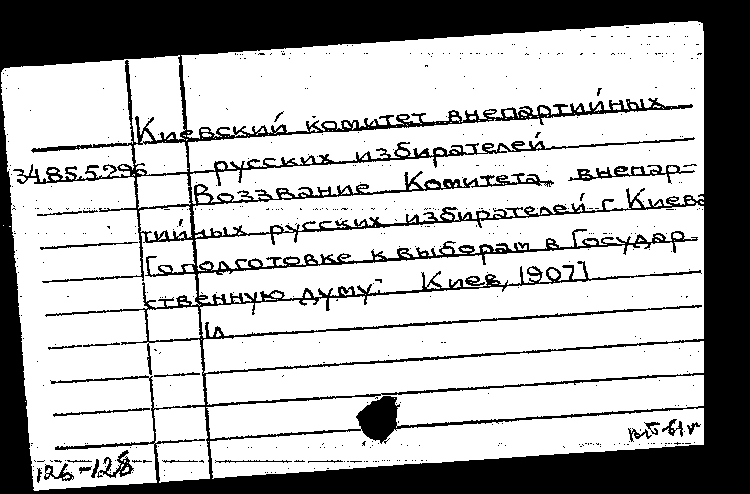 Киевский комитет внепартийных
34.85.5.296 русских избирателей
Воззвание Комитета внепар-
тийных русских избирателей г. Киева
[о подготовке к выборам в Государ-
ственную думу. Киев, 1907]
1л
126-128